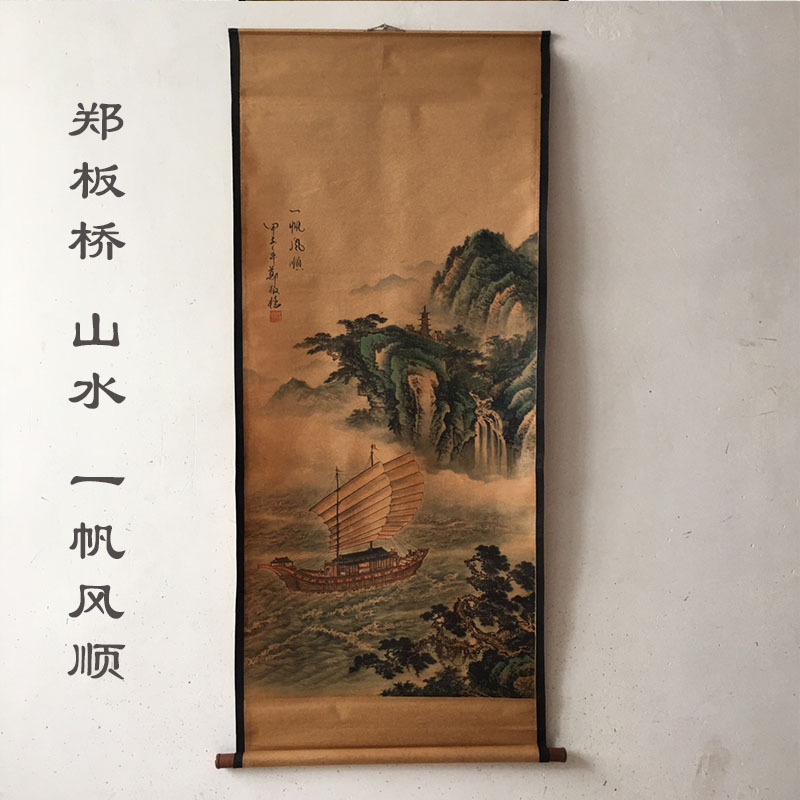 郑板桥 山水 一帆风顺
一帆风順
甲子年鄭板橋